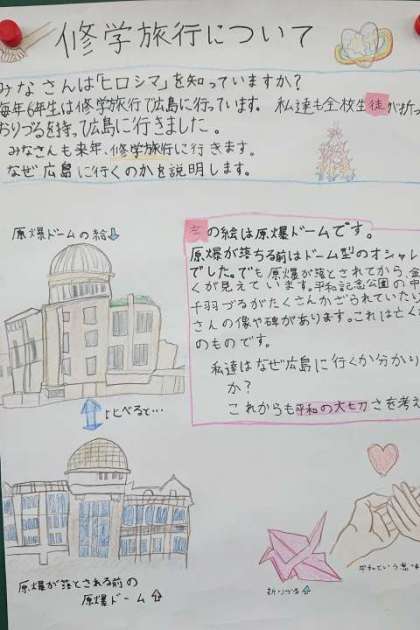 修学旅行について
みなさんは「ヒロシマ」を知っていますか？
毎年6年生は修学旅行で広島に行っています。 私達も全校生徒が
おりづるを持って広島に行きました。
みなさんも来年、修学旅行に行きます。
なぜ広島に行くのかを説明します。
原爆ドームの絵
の絵は原爆ドームです。
原爆が落ちる前はドーム型のオシャレ
でした。でも原爆が落とされてから、
くが見えています。平和記念公園の中
千羽づるがたくさんかざられていたり
さんの像や碑があります。これは亡く
のものです。
私達はなぜ広島に行くか分かり
か？
これからも平和の大切さを考え
くらべると…
原爆が落とされる前の
原爆ドーム
折りづる